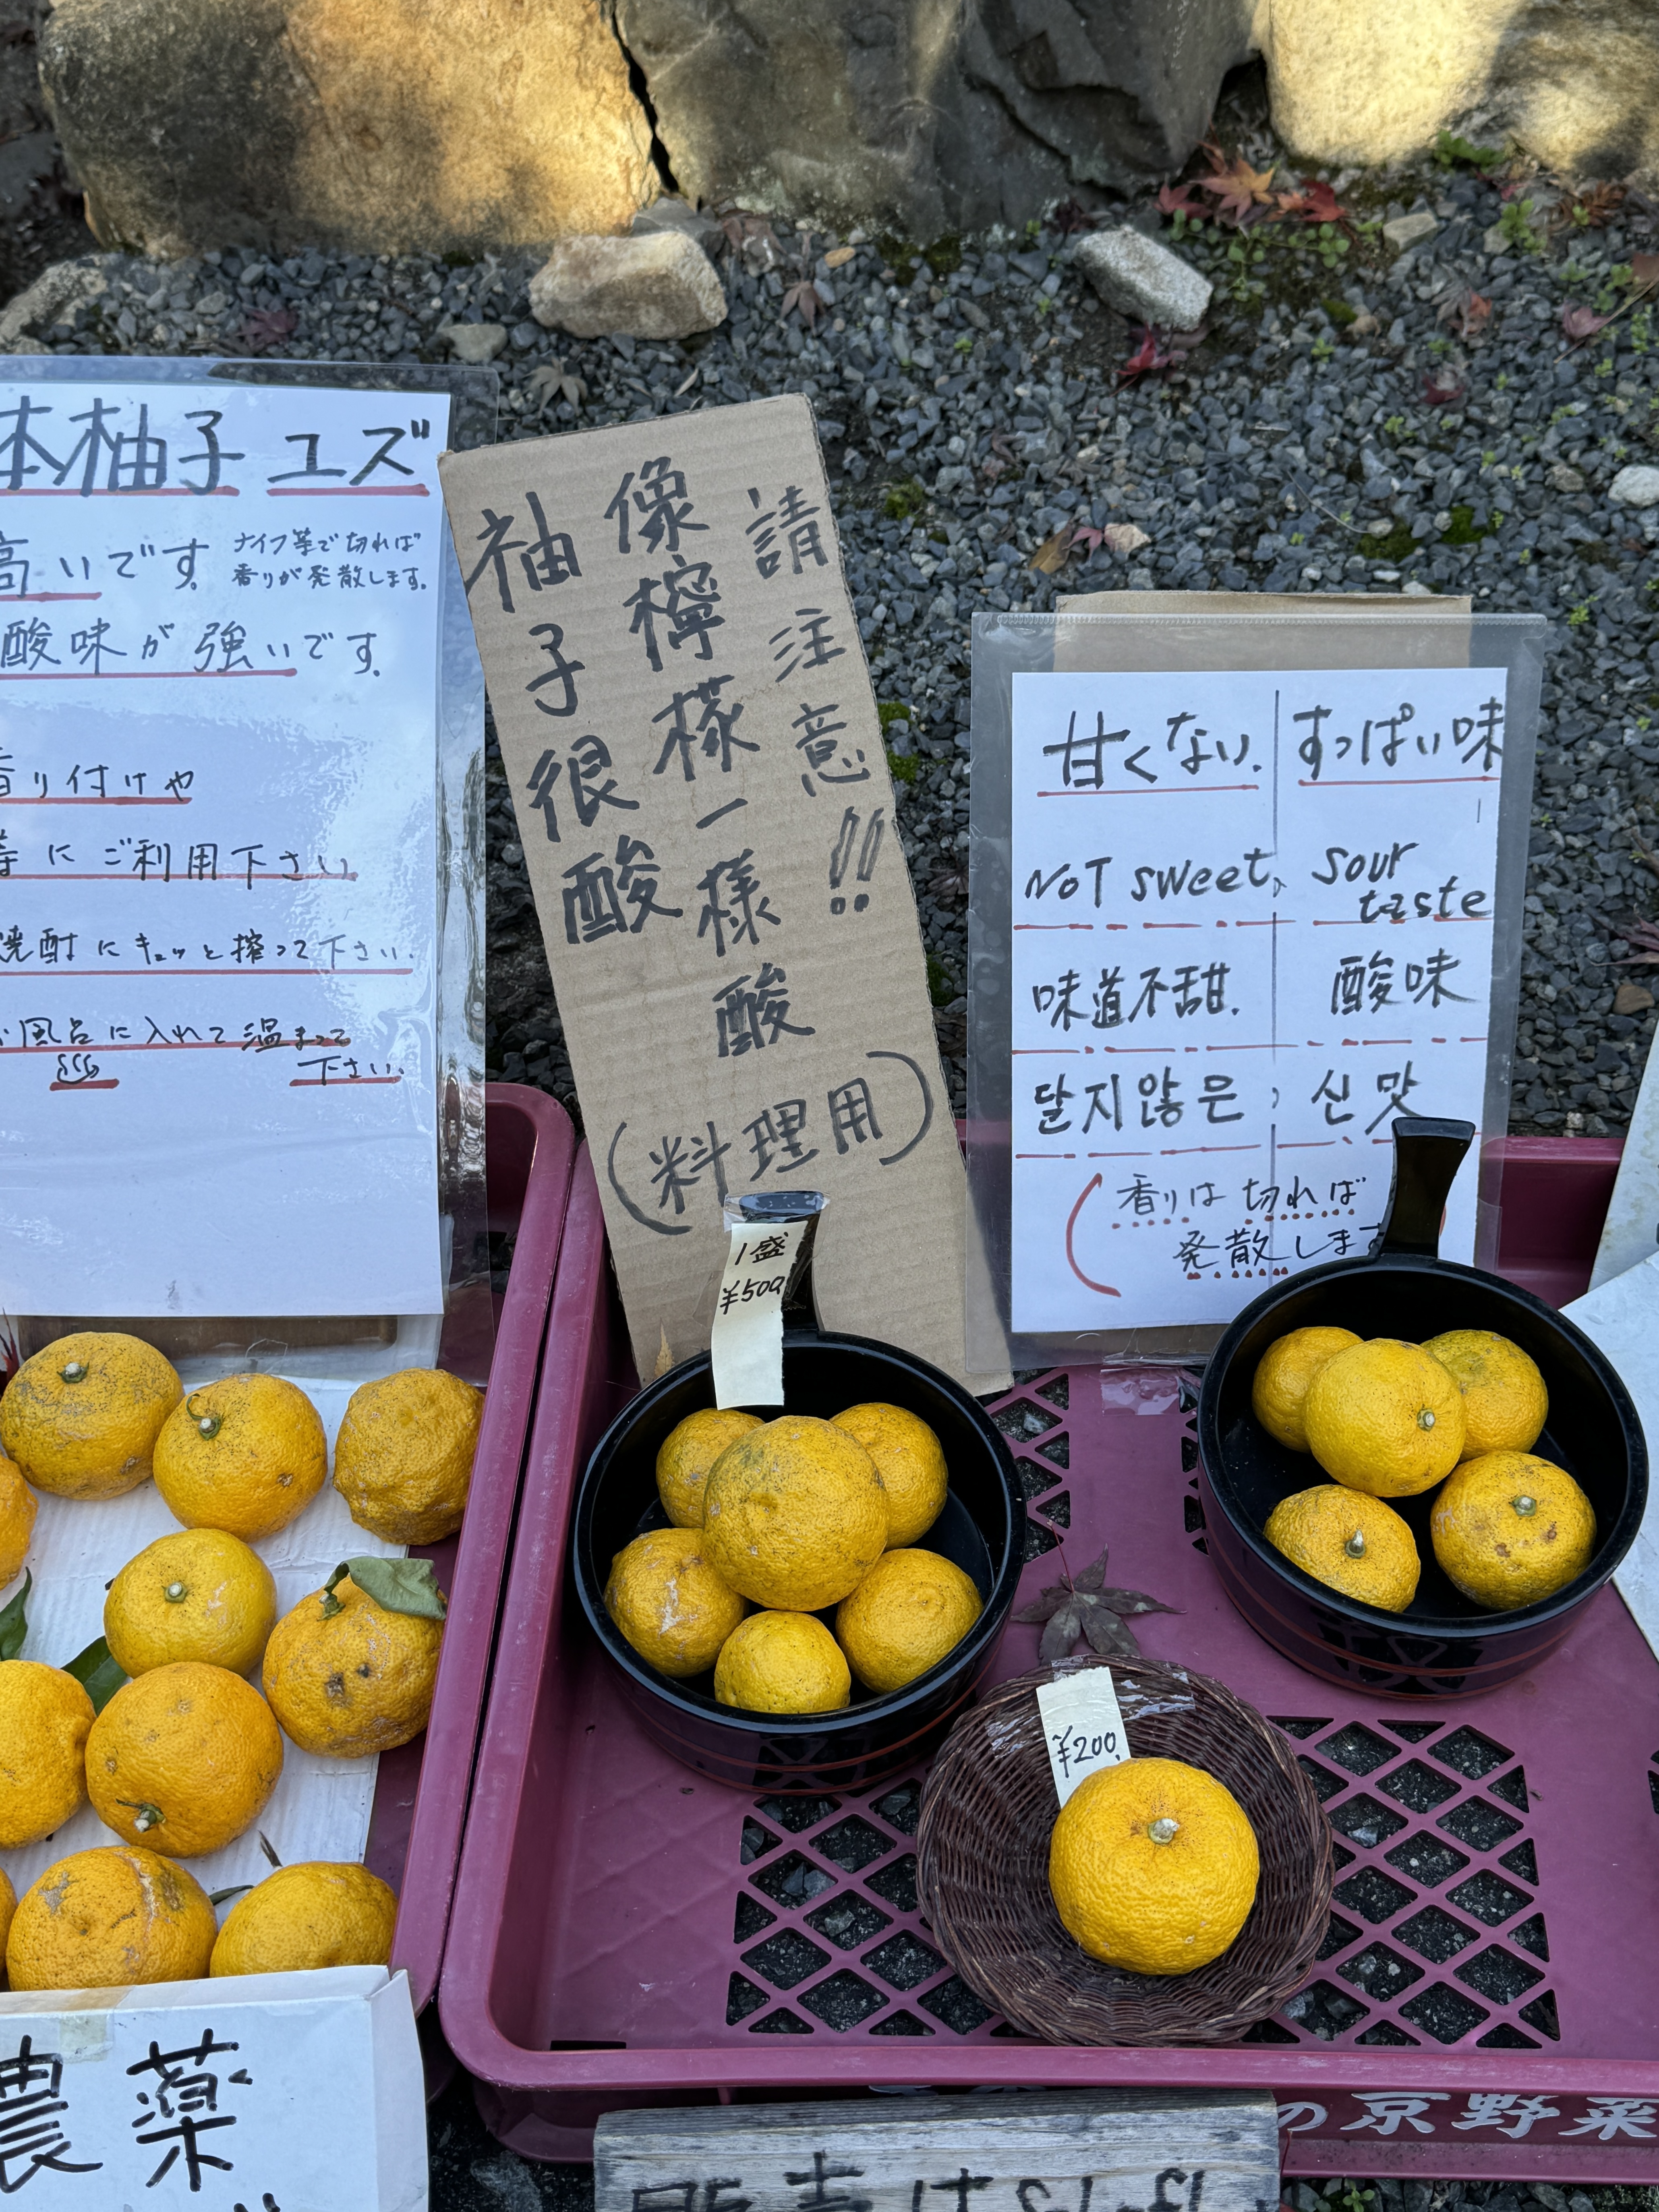 本柚子 ユズ
高いです。
ナイフ等で切れば
香りが発散します。
酸味が強いです。
香り付けや
等にご利用下さい
焼酎にキュッと搾って下さい.
お風呂に入れて温まって
下さい.
請注意!!
像檸檬一樣酸
柚子很酸
(料理用)
1盛
¥500
甘くない. すっぱい味
NOT sweet, sour
taste
味道不甜. 酸味
달지않은, 신맛
(香りは切れば
発散します
¥200.
農薬
の京野菜